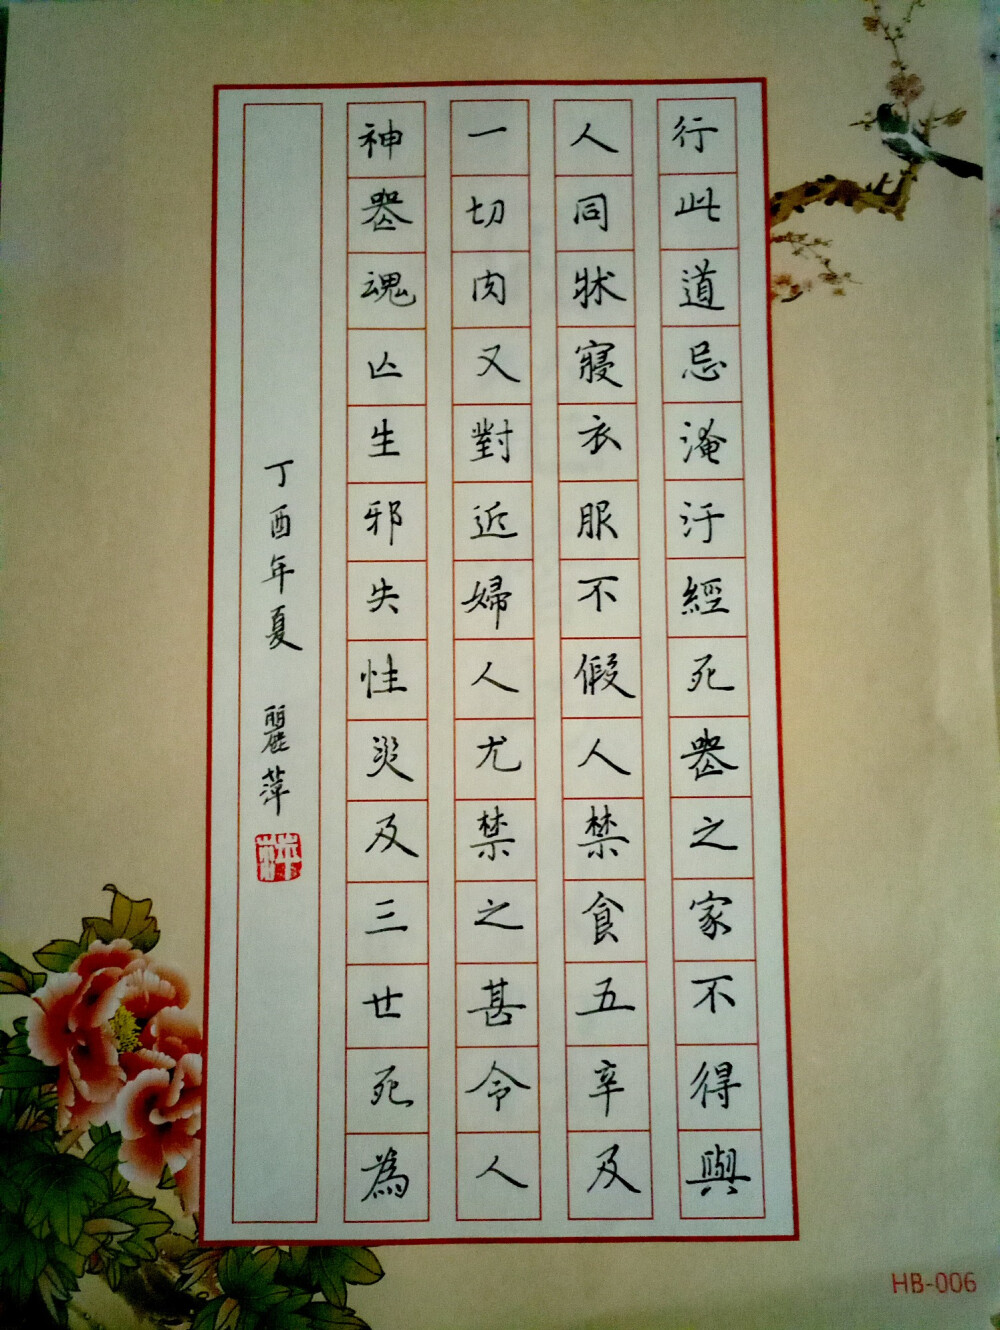 行此道忌淹汙經死喪之家不得與
人同牀寢衣服不假人禁食五辛及
一切肉又對近婦人尤禁之甚令人
神喪魂亾生邪失性災及三世死為
丁酉年夏 麗萍
HB-006